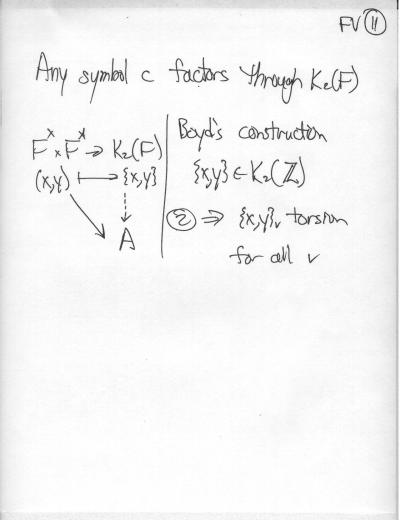 FV 11
Any symbol c factors through K₂(F)
F^x × F^x → K₂(F)
(x,y) ↦ {x,y}
A
Boyd's construction
{x,y} ∈ K₂(ℤ)
② ⇒ {x,y}ᵥ torsion
for all v